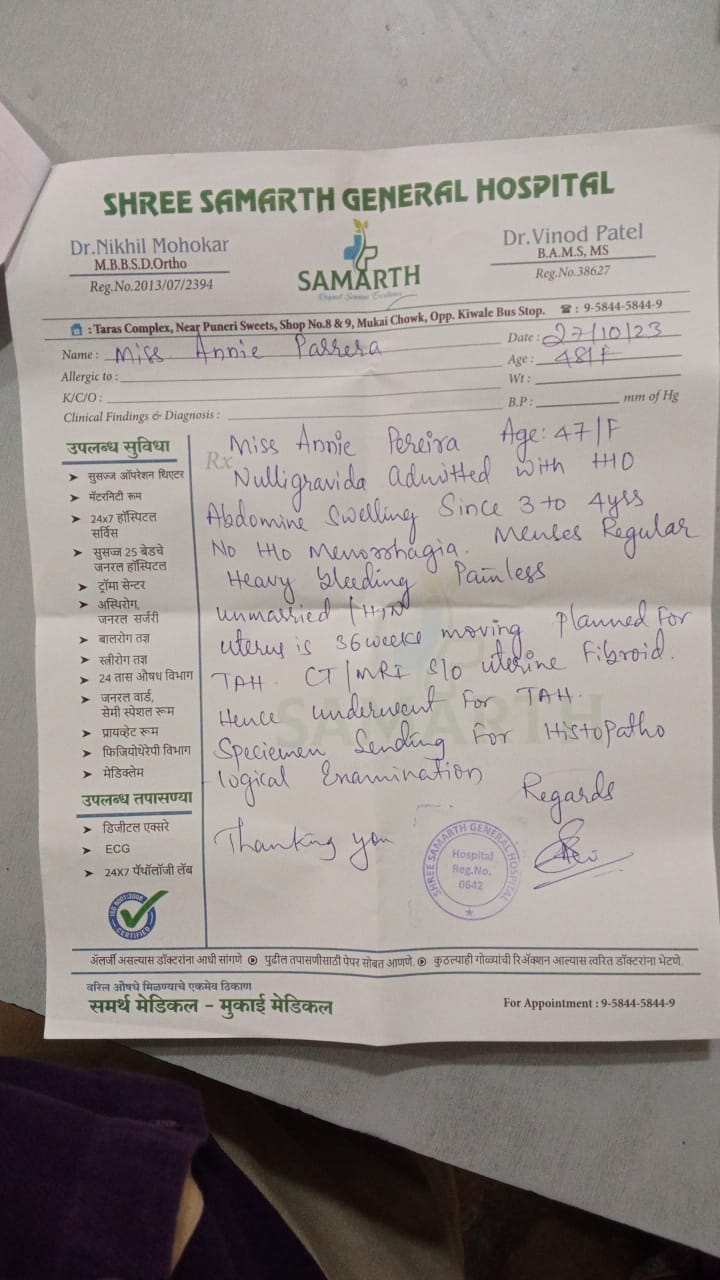 SHREE SAMARTH GENERAL HOSPITAL
Dr.Nikhil Mohokar
M.B.B.S.D.Ortho
Reg.No.2013/07/2394
SAMARTH
Dr.Vinod Patel
B.A.M.S, MS
Reg.No.38627
: Taras Complex, Near Puneri Sweets, Shop No.8 & 9, Mukai Chowk, Opp. Kiwale Bus Stop. ☎ : 9-5844-5844-9
Name : Miss Annie Parrera
Date : 27/10/23
Allergic to :
Age : 48/F
K/C/O :
Wt :
Clinical Findings & Diagnosis :
B.P : mm of Hg
उपलब्ध सुविधा
➤ सुसज्ज ऑपरेशन थिएटर
➤ मॅटरनिटी रूम
➤ 24x7 हॉस्पिटल
सर्विस
➤ सुसज्ज 25 बेडचे
जनरल हॉस्पिटल
➤ ट्रॉमा सेन्टर
➤ अस्थिरोग,
जनरल सर्जरी
➤ बालरोग तज्ञ
➤ स्त्रीरोग तज्ञ
➤ 24 तास औषध विभाग
➤ जनरल वार्ड,
सेमी स्पेशल रूम
➤ प्रायव्हेट रूम
➤ फिजियोथेरेपी विभाग
➤ मेडिक्लेम
उपलब्ध तपासण्या
➤ डिजीटल एक्सरे
➤ ECG
➤ 24X7 पॅथॉलॉजी लॅब
ISO 9001:2008
CERTIFIED
Rx
Miss Annie Pereira Age: 47/F
Nulligravida admitted with H/O
Abdomine Swelling Since 3 to 4yrs
No H/o Menorrhagia. Menses Regular
Heavy bleeding Painless
unmarried / HTN
uterus is 36weeks moving planned For
TAH. CT/MRI S/o uterine Fibroid.
Hence underwent For TAH.
Speciemen Sending For Histopatho
logical Examination
Regards
Thanking you
SHREE SAMARTH GENERAL HOSPITAL
Hospital
Reg.No.
0642
SAMARTH
ॲलर्जी असल्यास डॉक्टरांना आधी सांगणे ⊙ पुढील तपासणीसाठी पेपर सोबत आणणे. ⊙ कुठल्याही गोळ्यांची रिॲक्शन आल्यास त्वरित डॉक्टरांना भेटणे.
वरिल औषधे मिळण्याचे एकमेव ठिकाण
समर्थ मेडिकल - मुकाई मेडिकल
For Appointment : 9-5844-5844-9